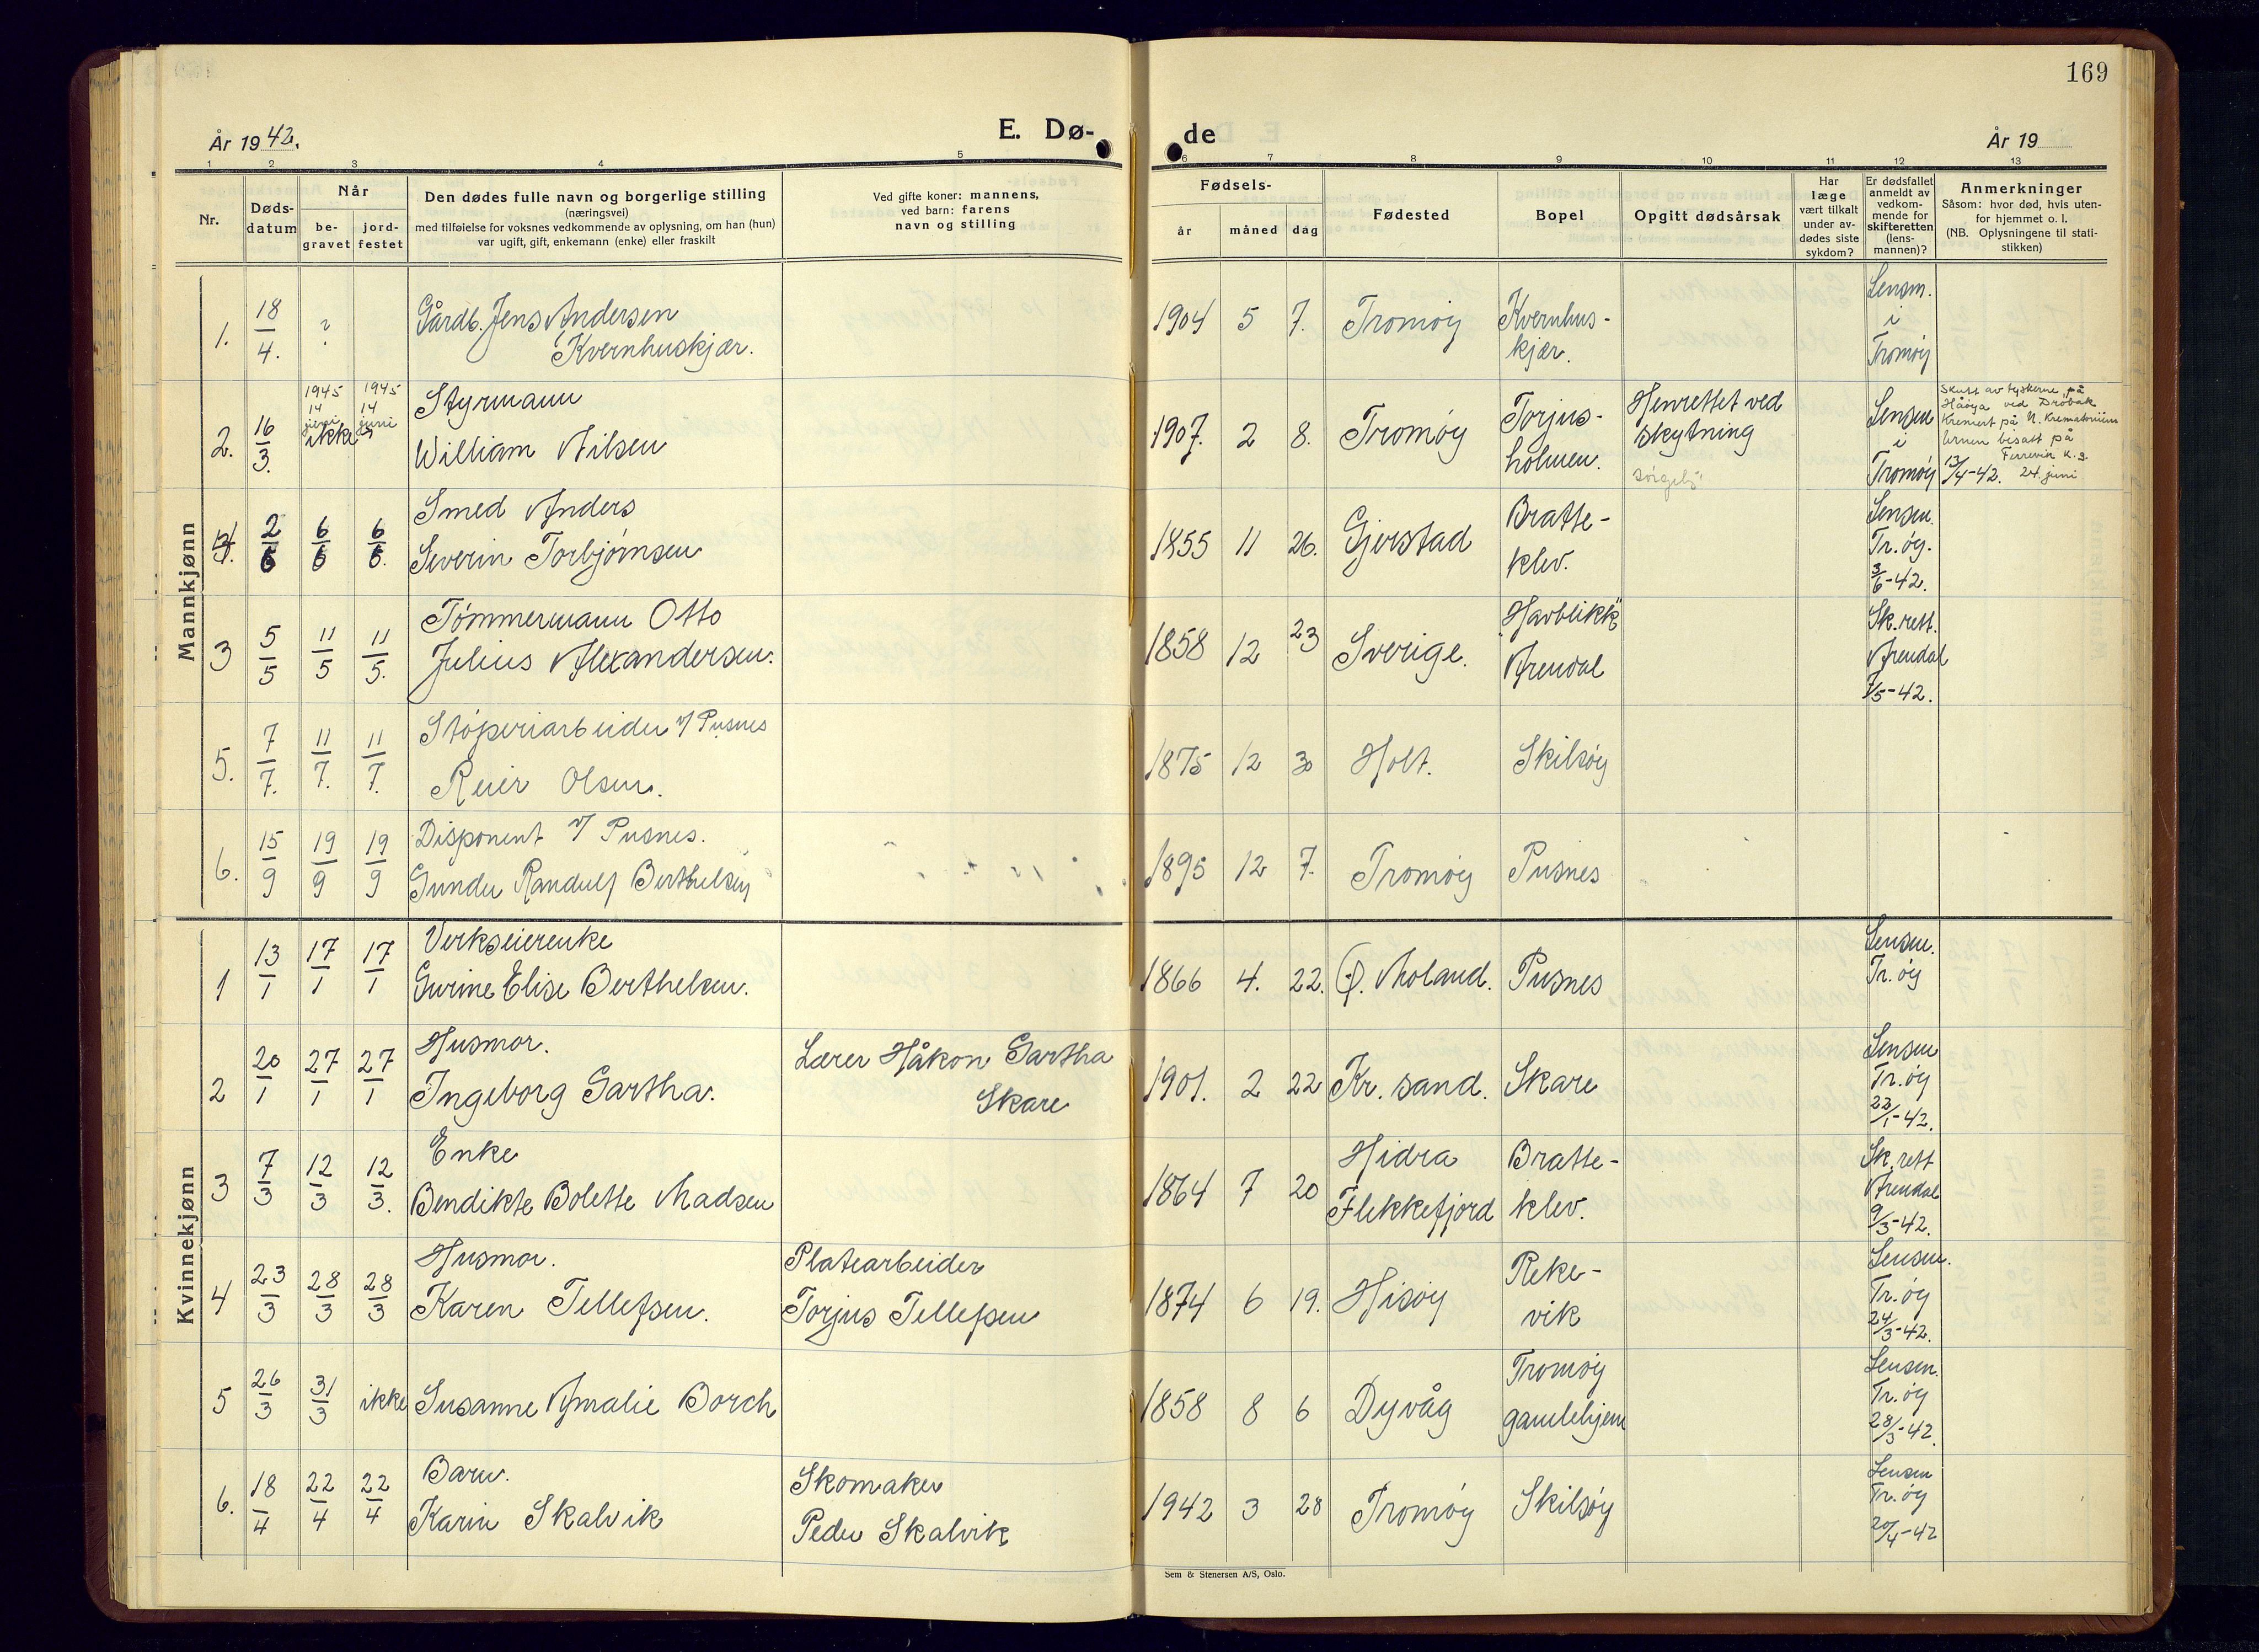 169
År 1942.
E. Dø-
de
År 19
1 2 3 4 5 6 7 8 9 10 11 12 13
Nr.
Døds-
datum
Når
be-
gravet
jord-
festet
Den dødes fulle navn og borgerlige stilling
(næringsvei)
med tilføielse for voksnes vedkommende av oplysning, om han (hun)
var ugift, gift, enkemann (enke) eller fraskilt
Ved gifte koner: mannens,
ved barn: farens
navn og stilling
Fødsels-
år
måned
dag
Fødested
Bopel
Opgitt dødsårsak
Har
læge
vært tilkalt
under av-
dødes siste
sykdom?
Er dødsfallet
anmeldt av
vedkom-
mende for
skifteretten
(lens-
mannen)?
Anmerkninger
Såsom: hvor død, hvis uten-
for hjemmet o. l.
(NB. Oplysningene til stati-
stikken)
Mannkjønn
1. 18/4. ? Gårdb. Jens Andersen
Kvernhuskjær.
1904 5 7. Tromøy Kvernhus-
kjær.
Lensm.
i
Tromøy
2. 16/3. 1945 14 juni ikke 1945 14 juni
Styrmann
William Nilsen
1907. 2 8. Tromøy Torjus-
holmen.
Henrettet ved
skytning
Lensm
i
Tromøy
Skutt av tyskerne på
Håøya ved Drøbak
Kremert på N. Krematorium
Urnen bisatt på
Færvik k.g.
13/4-42. 24. juni
2/6 6/6 6/6. Smed Anders
Severin Torbjørnsen
1855 11 26. Gjerstad Bratte-
klev.
Lensm.
Tr.øy.
3/6-42.
3 5/5 11/5 11/5. Tømmermann Otto
Julius Alexandersen.
1858 12 23 Sverige. "Havblikk"
Arendal
Sk.rett.
Arendal
7/5-42.
5. 7/7. 11/7. 11/7. Støperiarbeider v/ Pusnes
Reier Olsen.
1875 12 3 Holt. Skilsøy
6. 15/9 19/9 19/9 Disponent v/ Pusnes.
Gunder Randulf Berthelsen
1895 12 7. Tromøy Pusnes
Kvinnekjønn
1 13/1 17/1 17/1 Verkseierenke
Gurine Elise Berthelsen.
1866 4. 22. Ø. Moland. Pusnes
Lensm.
Tr.øy
2 20/1 27/1 27/1 Husmor.
Ingeborg Gartha.
Lærer Håkon Gartha
Skare
1901. 2 22 Kr. sand. Skare
Lensm
Tr.øy
22/1-42.
3 7/3 12/3 12/3. Enke
Bendikte Bolette Madsen
1864 7 20 Hidra
Flekkefjord
Bratte-
klev.
Sk.rett
Arendal
9/3-42.
4 23/3 28/3 28/3 Husmor.
Karen Tellefsen.
Platearbeider
Torjus Tellefsen
1874 6 19. Hisøy Reke-
vik
Lensm.
Tr.øy
24/3-42.
5 26/3 31/3 ikke Susanne Amalie Borch
1858 8 6 Dyvåg Tromøy
gamlehjem
Lensm.
Tr.øy
28/3-42.
6. 18/4 22/4 22/4 Barn.
Karin Skalvik
Skomaker
Peder Skalvik
1942 3 28 Tromøy Skilsøy
Lensm
Tr.øy
20/4-42
Sem & Stenersen A/S, Oslo.